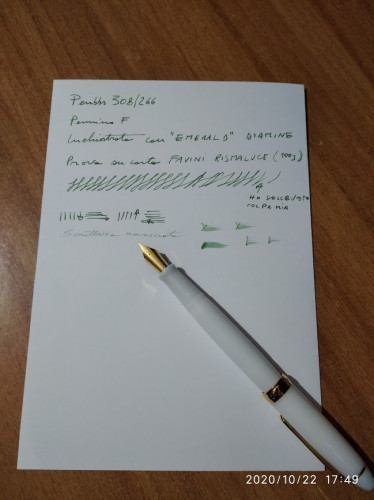 Penbbs 308/266
Pennino F
Inchiostrata con "EMERALD" DIAMINE
Prova su carta FAVINI RISMALUCE (100g)
HO
COLPA MIA
Scrittura rovesciata
2020/10/22 17:49